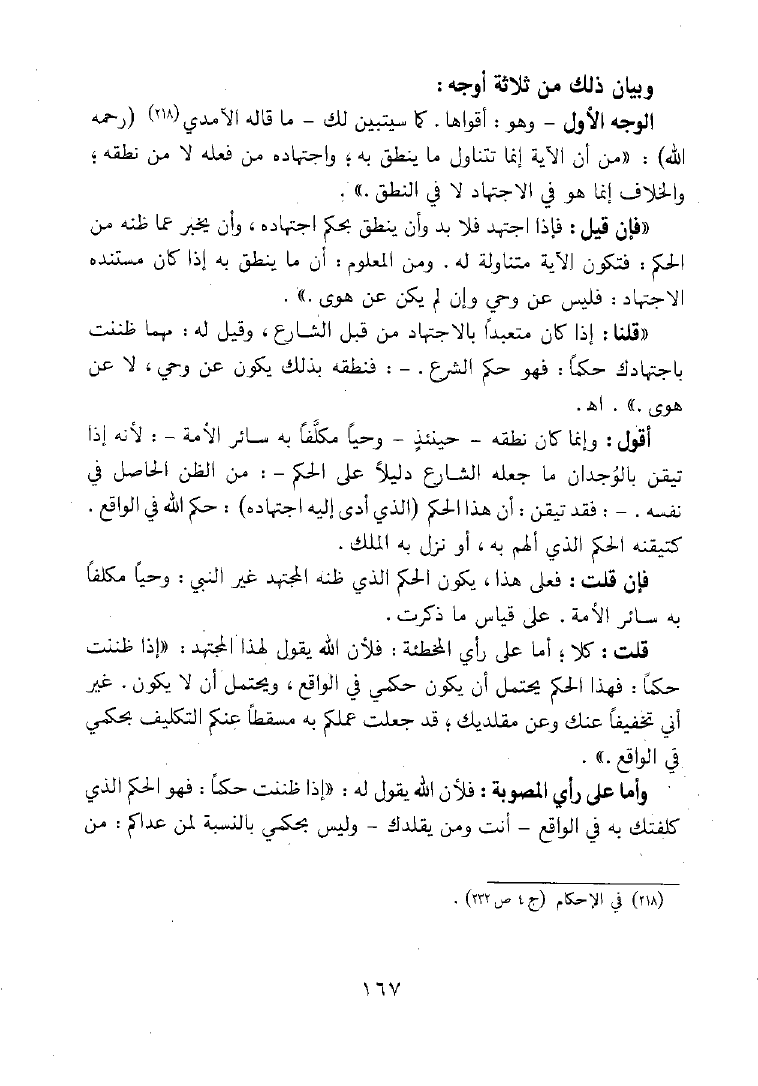 وبيان ذلك من ثلاثة أوجه :
الوجه الأول - وهو : أقواها . كما سيتبين لك - ما قاله الآمدي (٢١٨) (رحمه
الله) : «من أن الآية إنما تتناول ما ينطق به ؛ واجتهاده من فعله لا من نطقه ؛
والخلاف إنما هو في الاجتهاد لا في النطق .» .
«فإن قيل : فإذا اجتهد فلا بد وأن ينطق بحكم اجتهاده ، وأن يخبر عما ظنه من
الحكم : فتكون الآية متناولة له . ومن المعلوم : أن ما ينطق به إذا كان مستنده
الاجتهاد : فليس عن وحي وإن لم يكن عن هوى .» .
«قلنا : إذا كان متعبداً بالاجتهاد من قبل الشارع ، وقيل له : مهما ظننت
باجتهادك حكماً : فهو حكم الشرع . - : فنطقه بذلك يكون عن وحي ، لا عن
هوى .» . اهـ .
أقول : وإنما كان نطقه - حينئذٍ - وحياً مكلَّفاً به سائر الأمة - : لأنه إذا
تيقن بالوُجدان ما جعله الشارع دليلاً على الحكم - : من الظن الحاصل في
نفسه . - : فقد تيقن : أن هذا الحكم (الذي أدى إليه اجتهاده) : حكم الله في الواقع .
كتيقنه الحكم الذي ألهم به ، أو نزل به الملك .
فإن قلت : فعلى هذا ، يكون الحكم الذي ظنه المجتهد غير النبي : وحياً مكلفاً
به سائر الأمة . على قياس ما ذكرت .
قلت : كلا ؛ أما على رأي المخطئة : فلأن الله يقول لهذا المجتهد : «إذا ظننت
حكماً : فهذا الحكم يحتمل أن يكون حكمي في الواقع ، ويحتمل أن لا يكون . غير
أني تخفيفاً عنك وعن مقلديك ؛ قد جعلت عملكم به مسقطاً عنكم التكليف بحكمي
في الواقع .» .
وأما على رأي المصوبة : فلأن الله يقول له : «إذا ظننت حكماً : فهو الحكم الذي
كلفتك به في الواقع - أنت ومن يقلدك - وليس بحكمي بالنسبة لمن عداكم : من
(٢١٨) في الإحكام (ج ٤ ص ٢٣٢) .
١٦٧